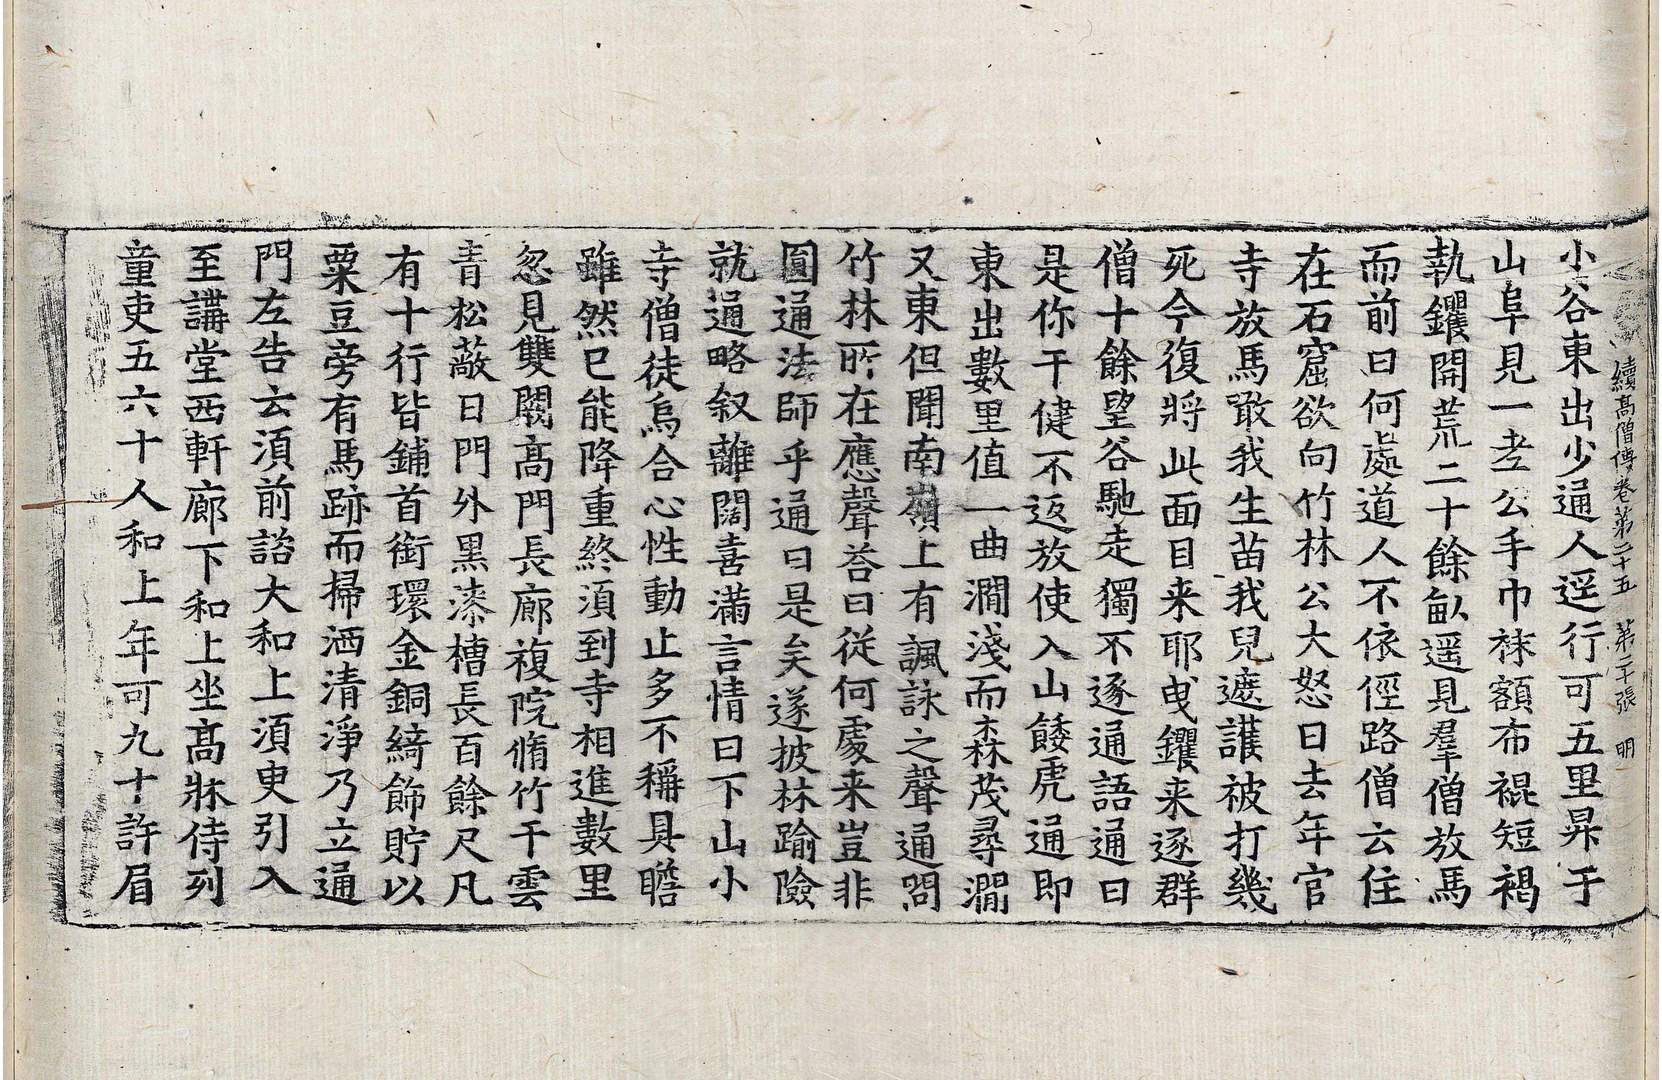 續高僧傳卷第二十五 第二十張 明
小谷東出少通人逕行可五里昇于
山阜見一老公手巾袜額布裩短褐
執钁開荒二十餘畝遥見羣僧放馬
而前曰何處道人不依俓路僧云住
在石窟欲向竹林公大怒曰去年官
寺放馬噉我生苗我兒遮護被打幾
死今復將此面目来耶曳钁来逐群
僧十餘望谷馳走獨不逐通語通曰
是你干健不返放使入山餧虎通即
東出數里值一曲澗淺而森茂尋澗
又東但聞南嶺上有諷詠之聲通問
竹林所在應聲荅曰從何處来豈非
圓通法師乎通曰是矣遂披林踰險
就通略叙離闊喜滿言情曰下山小
寺僧徒烏合心性動止多不稱具瞻
雖然已能降重終須到寺相進數里
忽見雙闕高門長廊複院脩竹干雲
青松蔽日門外黑漆槽長百餘尺凡
有十行皆鋪首銜環金銅綺飾貯以
粟豆旁有馬跡而掃洒清淨乃立通
門左告云須前諮大和上須臾引入
至講堂西軒廊下和上坐高牀侍列
童吏五六十人和上年可九十許眉